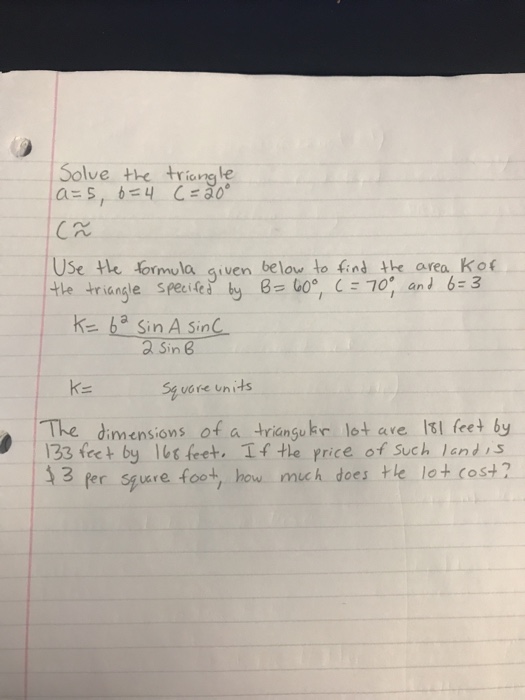 Solve the triangle
a=5, b=4 C=20°
C≈
Use the formula given below to find the area K of
the triangle specifed by B=60°, C=70°, and b=3
K= b² Sin A Sin C
2 Sin B
K= Square units
The dimensions of a triangular lot are 181 feet by
133 feet by 168 feet. If the price of such land is
$3 per square foot, how much does the lot cost?